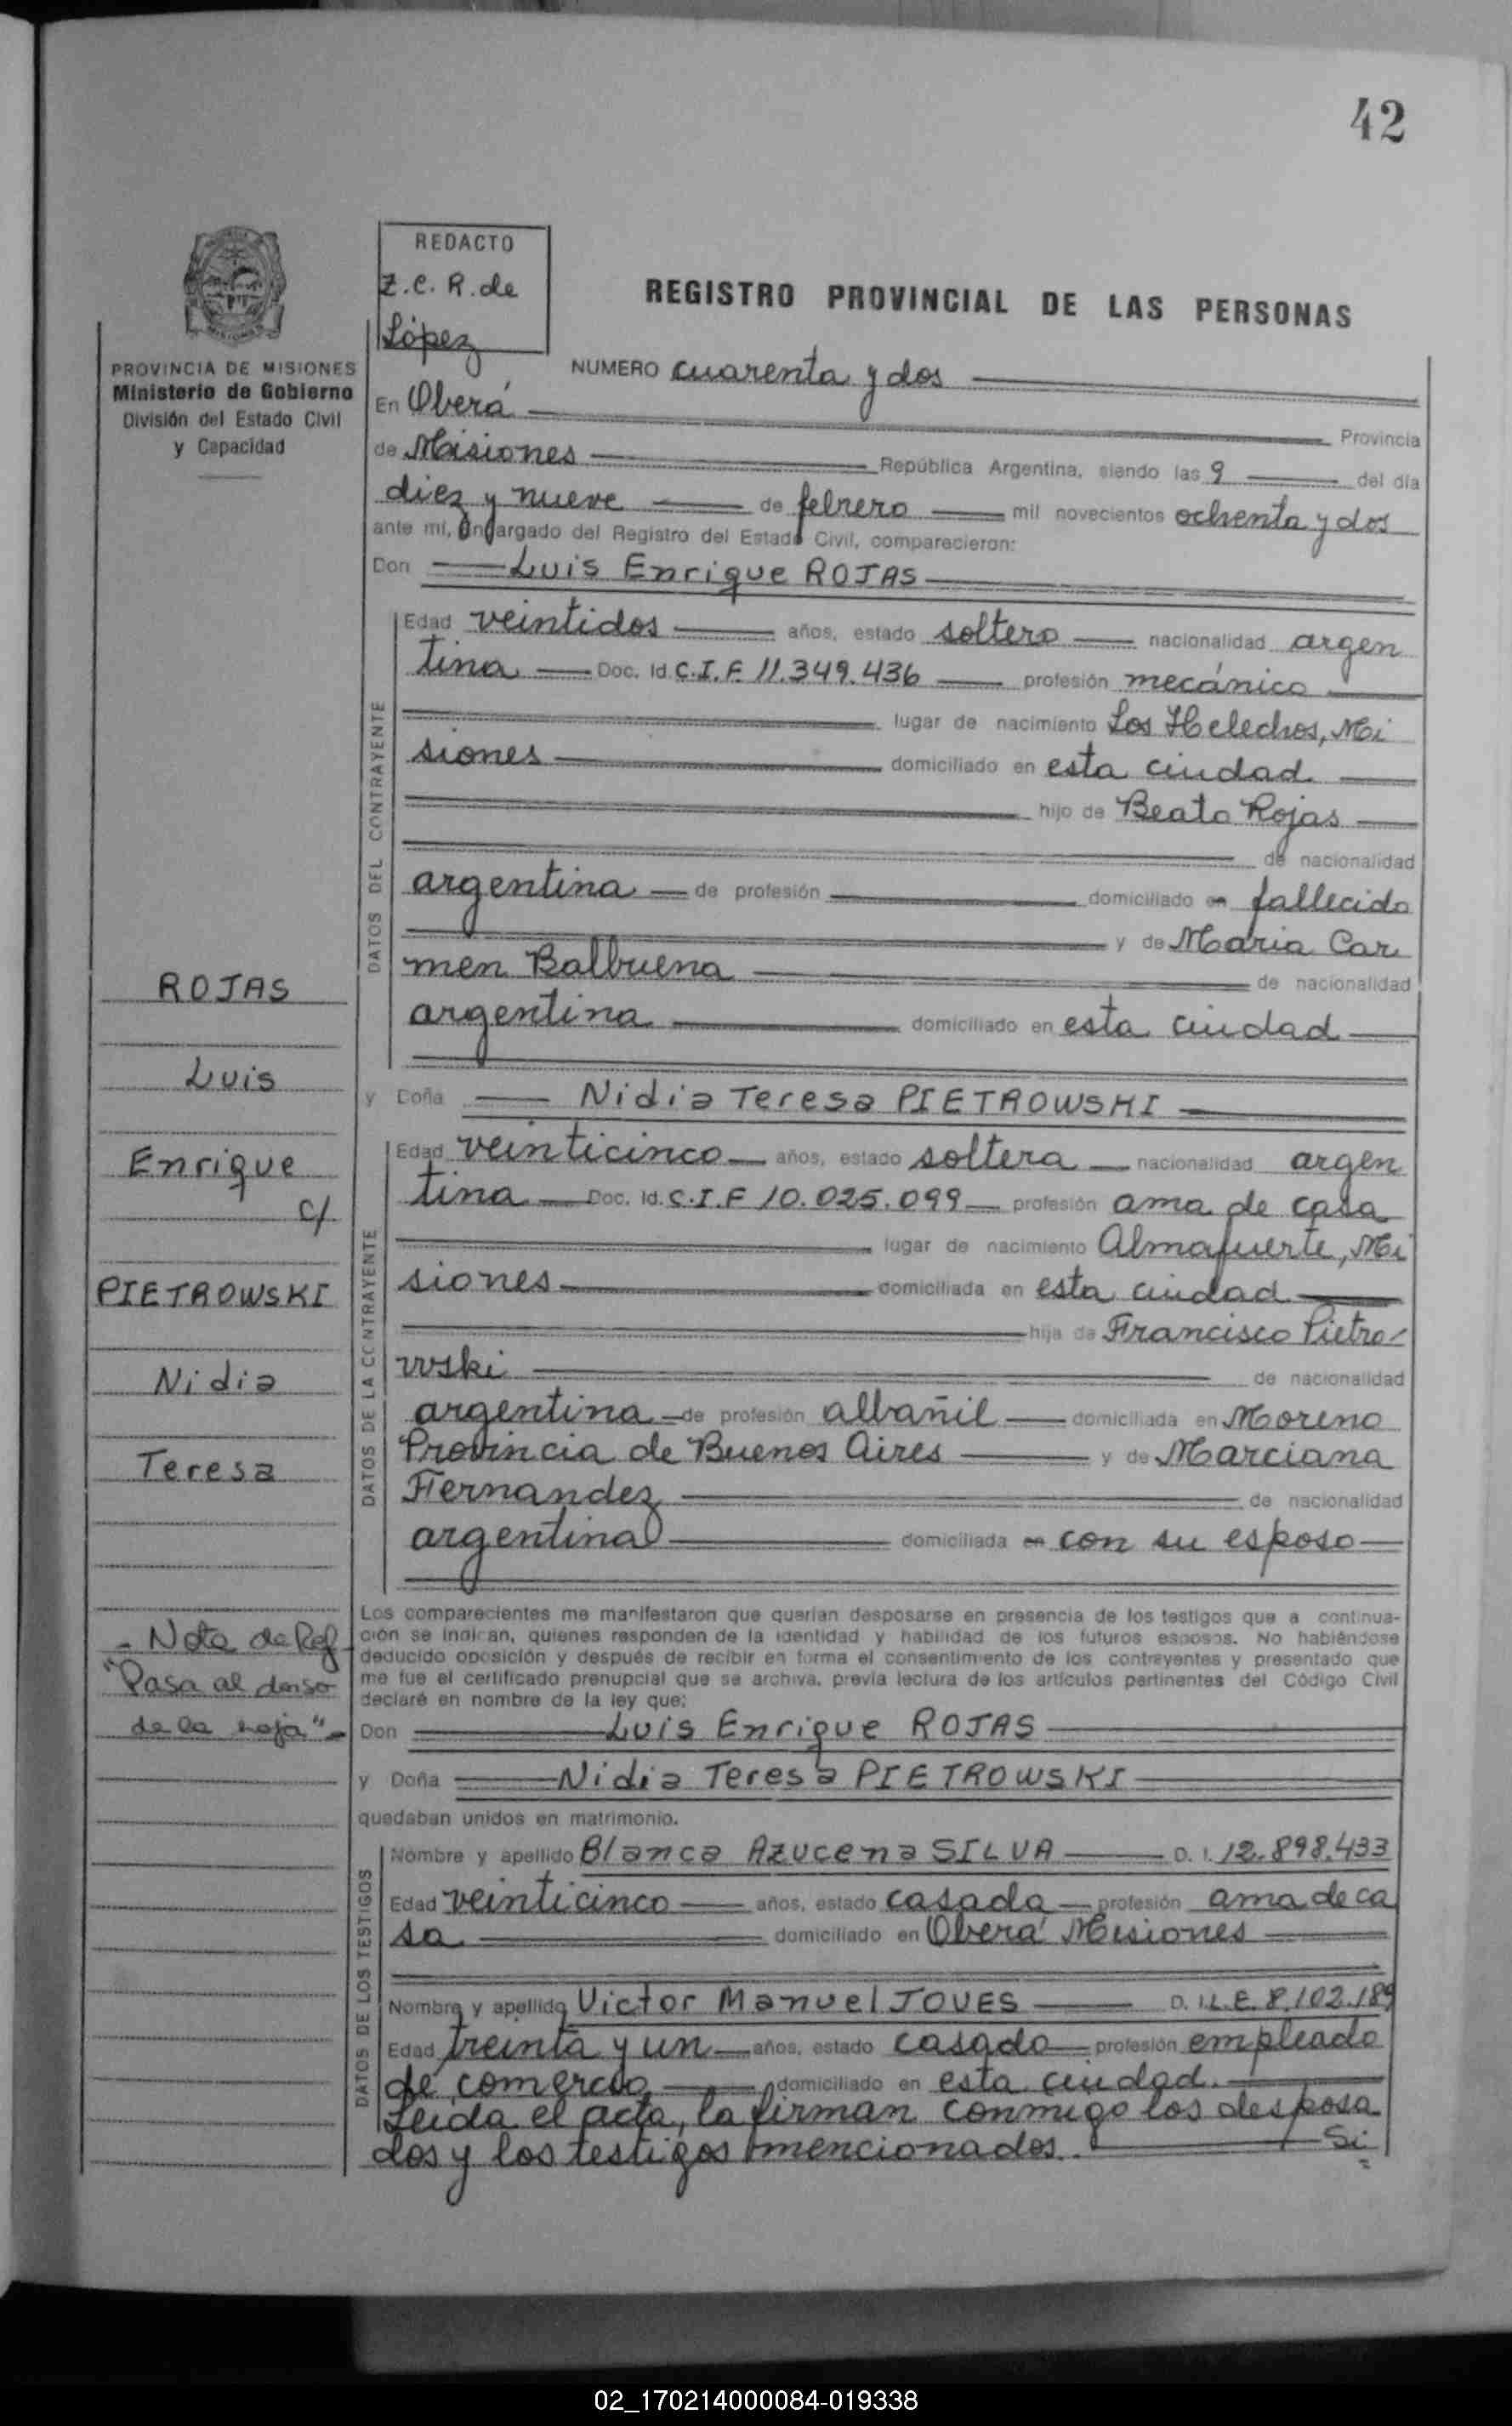 42
REDACTO
Z.C.R. de
López
REGISTRO PROVINCIAL DE LAS PERSONAS
PROVINCIA DE MISIONES
Ministerio de Gobierno
División del Estado Civil
y Capacidad
NUMERO cuarenta y dos
En Oberá Provincia
de Misiones República Argentina, siendo las 9 del día
diez y nueve de febrero mil novecientos ochenta y dos
ante mí, Encargado del Registro del Estado Civil, comparecieron:
Don Luis Enrique ROJAS
DATOS DEL CONTRAYENTE
Edad veintidos años, estado soltero nacionalidad argen
tina Doc. Id. C.I.F. 11.349.436 profesión mecánico
lugar de nacimiento Los Helechos, Mi
siones domiciliado en esta ciudad
hijo de Beato Rojas
de nacionalidad
argentina de profesión domiciliado en fallecido
y de Maria Car
men Balbuena de nacionalidad
argentina domiciliado en esta ciudad
y Doña Nidia Teresa PIETROWSKI
DATOS DE LA CONTRAYENTE
Edad veinticinco años, estado soltera nacionalidad argen
tina Doc. Id. C.I.F 10.025.099 profesión ama de casa
lugar de nacimiento Almafuerte, Mi
siones domiciliada en esta ciudad
hija de Francisco Pietro-
wski de nacionalidad
argentina de profesión albañil domiciliada en Moreno
Provincia de Buenos Aires y de Marciana
Fernandez de nacionalidad
argentina domiciliada en con su esposo
Los comparecientes me manifestaron que querían desposarse en presencia de los testigos que a continua-
ción se indican, quienes responden de la identidad y habilidad de los futuros esposos. No habiéndose
deducido oposición y después de recibir en forma el consentimiento de los contrayentes y presentado que
me fue el certificado prenupcial que se archiva, previa lectura de los artículos pertinentes del Código Civil
declaré en nombre de la ley que:
Don Luis Enrique ROJAS
y Doña Nidia Teresa PIETROWSKI
quedaban unidos en matrimonio.
DATOS DE LOS TESTIGOS
Nombre y apellido Blanca Azucena SILVA D. I. 12.898.433
Edad veinticinco años, estado casada profesión ama de ca
sa domiciliado en Oberá Misiones
Nombre y apellido Victor Manuel JOVES D. I. L.E. 8.102.189
Edad treinta y un años, estado casado profesión empleado
de comercio domiciliado en esta ciudad.
Leida el acta, la firman conmigo los desposa
dos y los testigos mencionados. Si
ROJAS
Luis
Enrique
c/
PIETROWSKI
Nidia
Teresa
- Nota de Ref
"Pasa al dorso
de la hoja"-
02_170214000084-019338